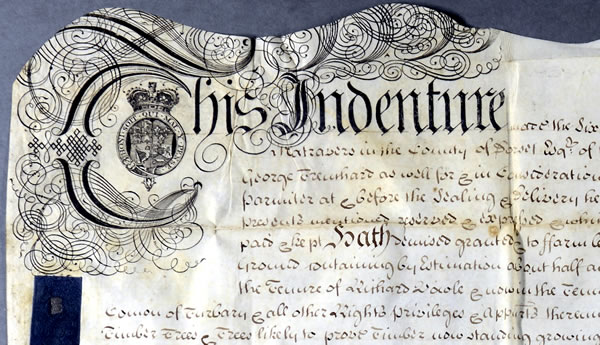 This Indenture made the Six
Matravers in the County of Dorset Esqr. of
George Trenchard as well for & in Consideration
parmiter at & before the Sealing & Delivery he
presents mentioned reserved & expressed & which
paid & kept Hath demised granted & to ffarm le
Ground containing by Estimation about half a
the Tenure of Richard & now in the Ten
Comon of Turbary & all other Rights priviledges & appts thereun
Timber Trees & Trees likely to prove Timber now standing growing